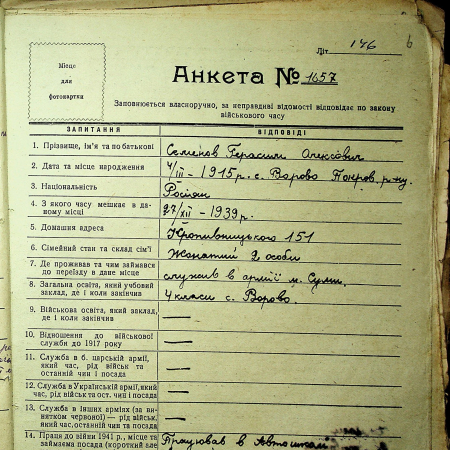 Літ 146 б
Місце
для
фотокартки
Анкета № 1657
Заповнюється власноручно, за неправдиві відомості відповідає по закону
військового часу
ЗАПИТАННЯ ВІДПОВІДІ
1. Прізвище, ім'я та по батькові Семенов Герасим Олексович
2. Дата та місце народження 4/III – 1915 р. с. Ворово Покров. р-ну.
3. Національність Росіян
4. З якого часу мешкає в да-
ному місці 27/XII – 1939 р.
5. Домашня адреса Кропивницького 151
6. Сімейний стан та склад сім'ї Жонатий 2 особи
7. Де проживав та чим займався
до переїзду в дане місце служив в армії м. Суми.
8. Загальна освіта, який учбовий
заклад, де і коли закінчив 4 класи с. Ворово.
9. Військова освіта, який заклад,
де і коли закінчив —
10. Відношення до військової
служби до 1917 року —
11. Служба в б. царській армії,
який час, рід військ та
останній чин і посада —
12. Служба в Українській армії, який
час, рід військ та ост. чин і посада —
13. Служба в інших арміях (за ви-
нятком червоної) — рід військ,
який час, останній чин та посада —
14. Праця до війни 1941 р., місце та
займаєма посада (короткий Працював в Автошколі